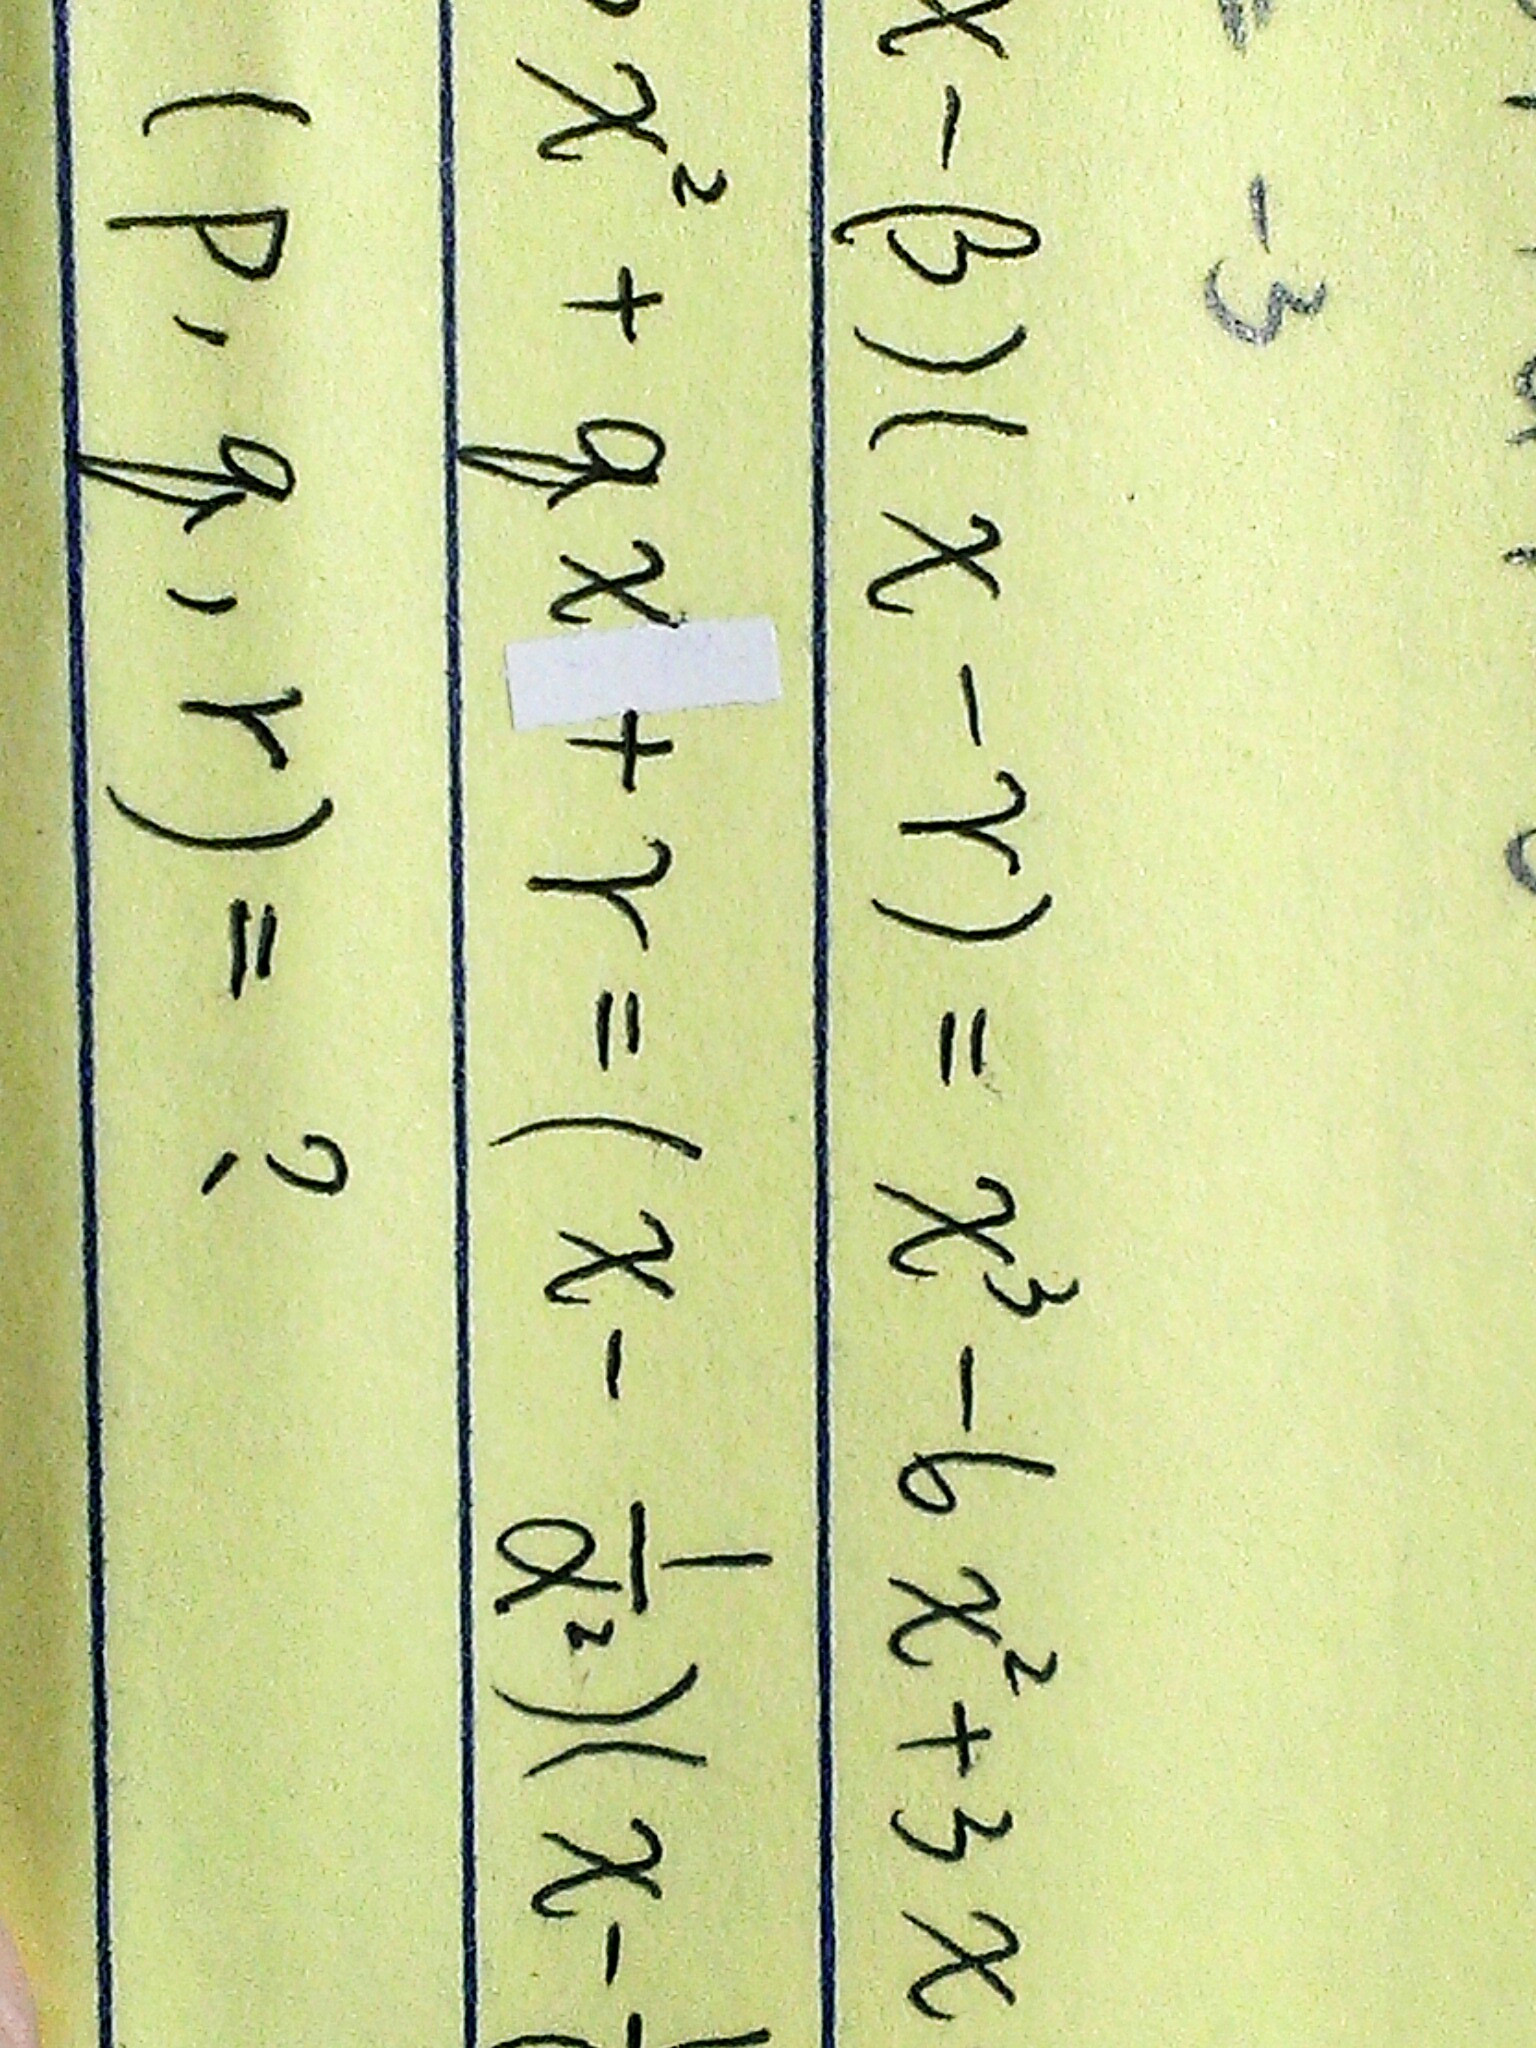 -3
x-β)(x-γ) = x³-6x²+3x
x² + qx + r = (x - 1/α²)(x -
(p, q, r) = ?